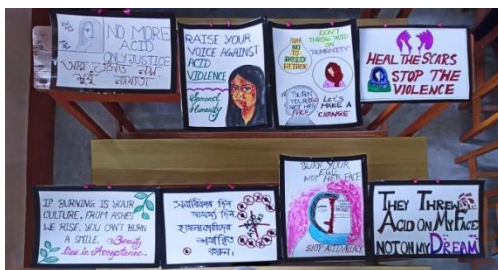 NO MORE
ACID
ONLY JUSTICE
RAISE YOUR
VOICE AGAINST
ACID
VIOLENCE
Humanity
SAY
NO TO
ACID
ATTACK
DON'T
THROW ACID
ON
"HUMANITY"
BURN
YOUR EGO
NOT HER
FACE
LET'S
MAKE A
CHANGE
HEAL THE SCARS
STOP THE
VIOLENCE
IF BURNING IS YOUR
CULTURE, FROM ASHES
WE RISE. YOU CAN'T BURN
A SMILE. Beauty
lies in Acceptance.
সমাধিকার দিন
করুন।
BURN YOUR
EGO
NOT HER FACE
STOP ACID ATTACK
THEY THREW
ACID ON MY FACE
NOT ON MY DREAM